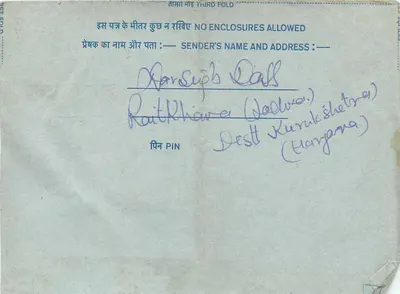 तीसरा मोड़ THIRD FOLD
इस पत्र के भीतर कुछ न रखिए NO ENCLOSURES ALLOWED
प्रेषक का नाम और पता :— SENDER'S NAME AND ADDRESS :—
Dass
(Ladwa.)
Distt Kurukshetra
(Haryana)
पिन PIN